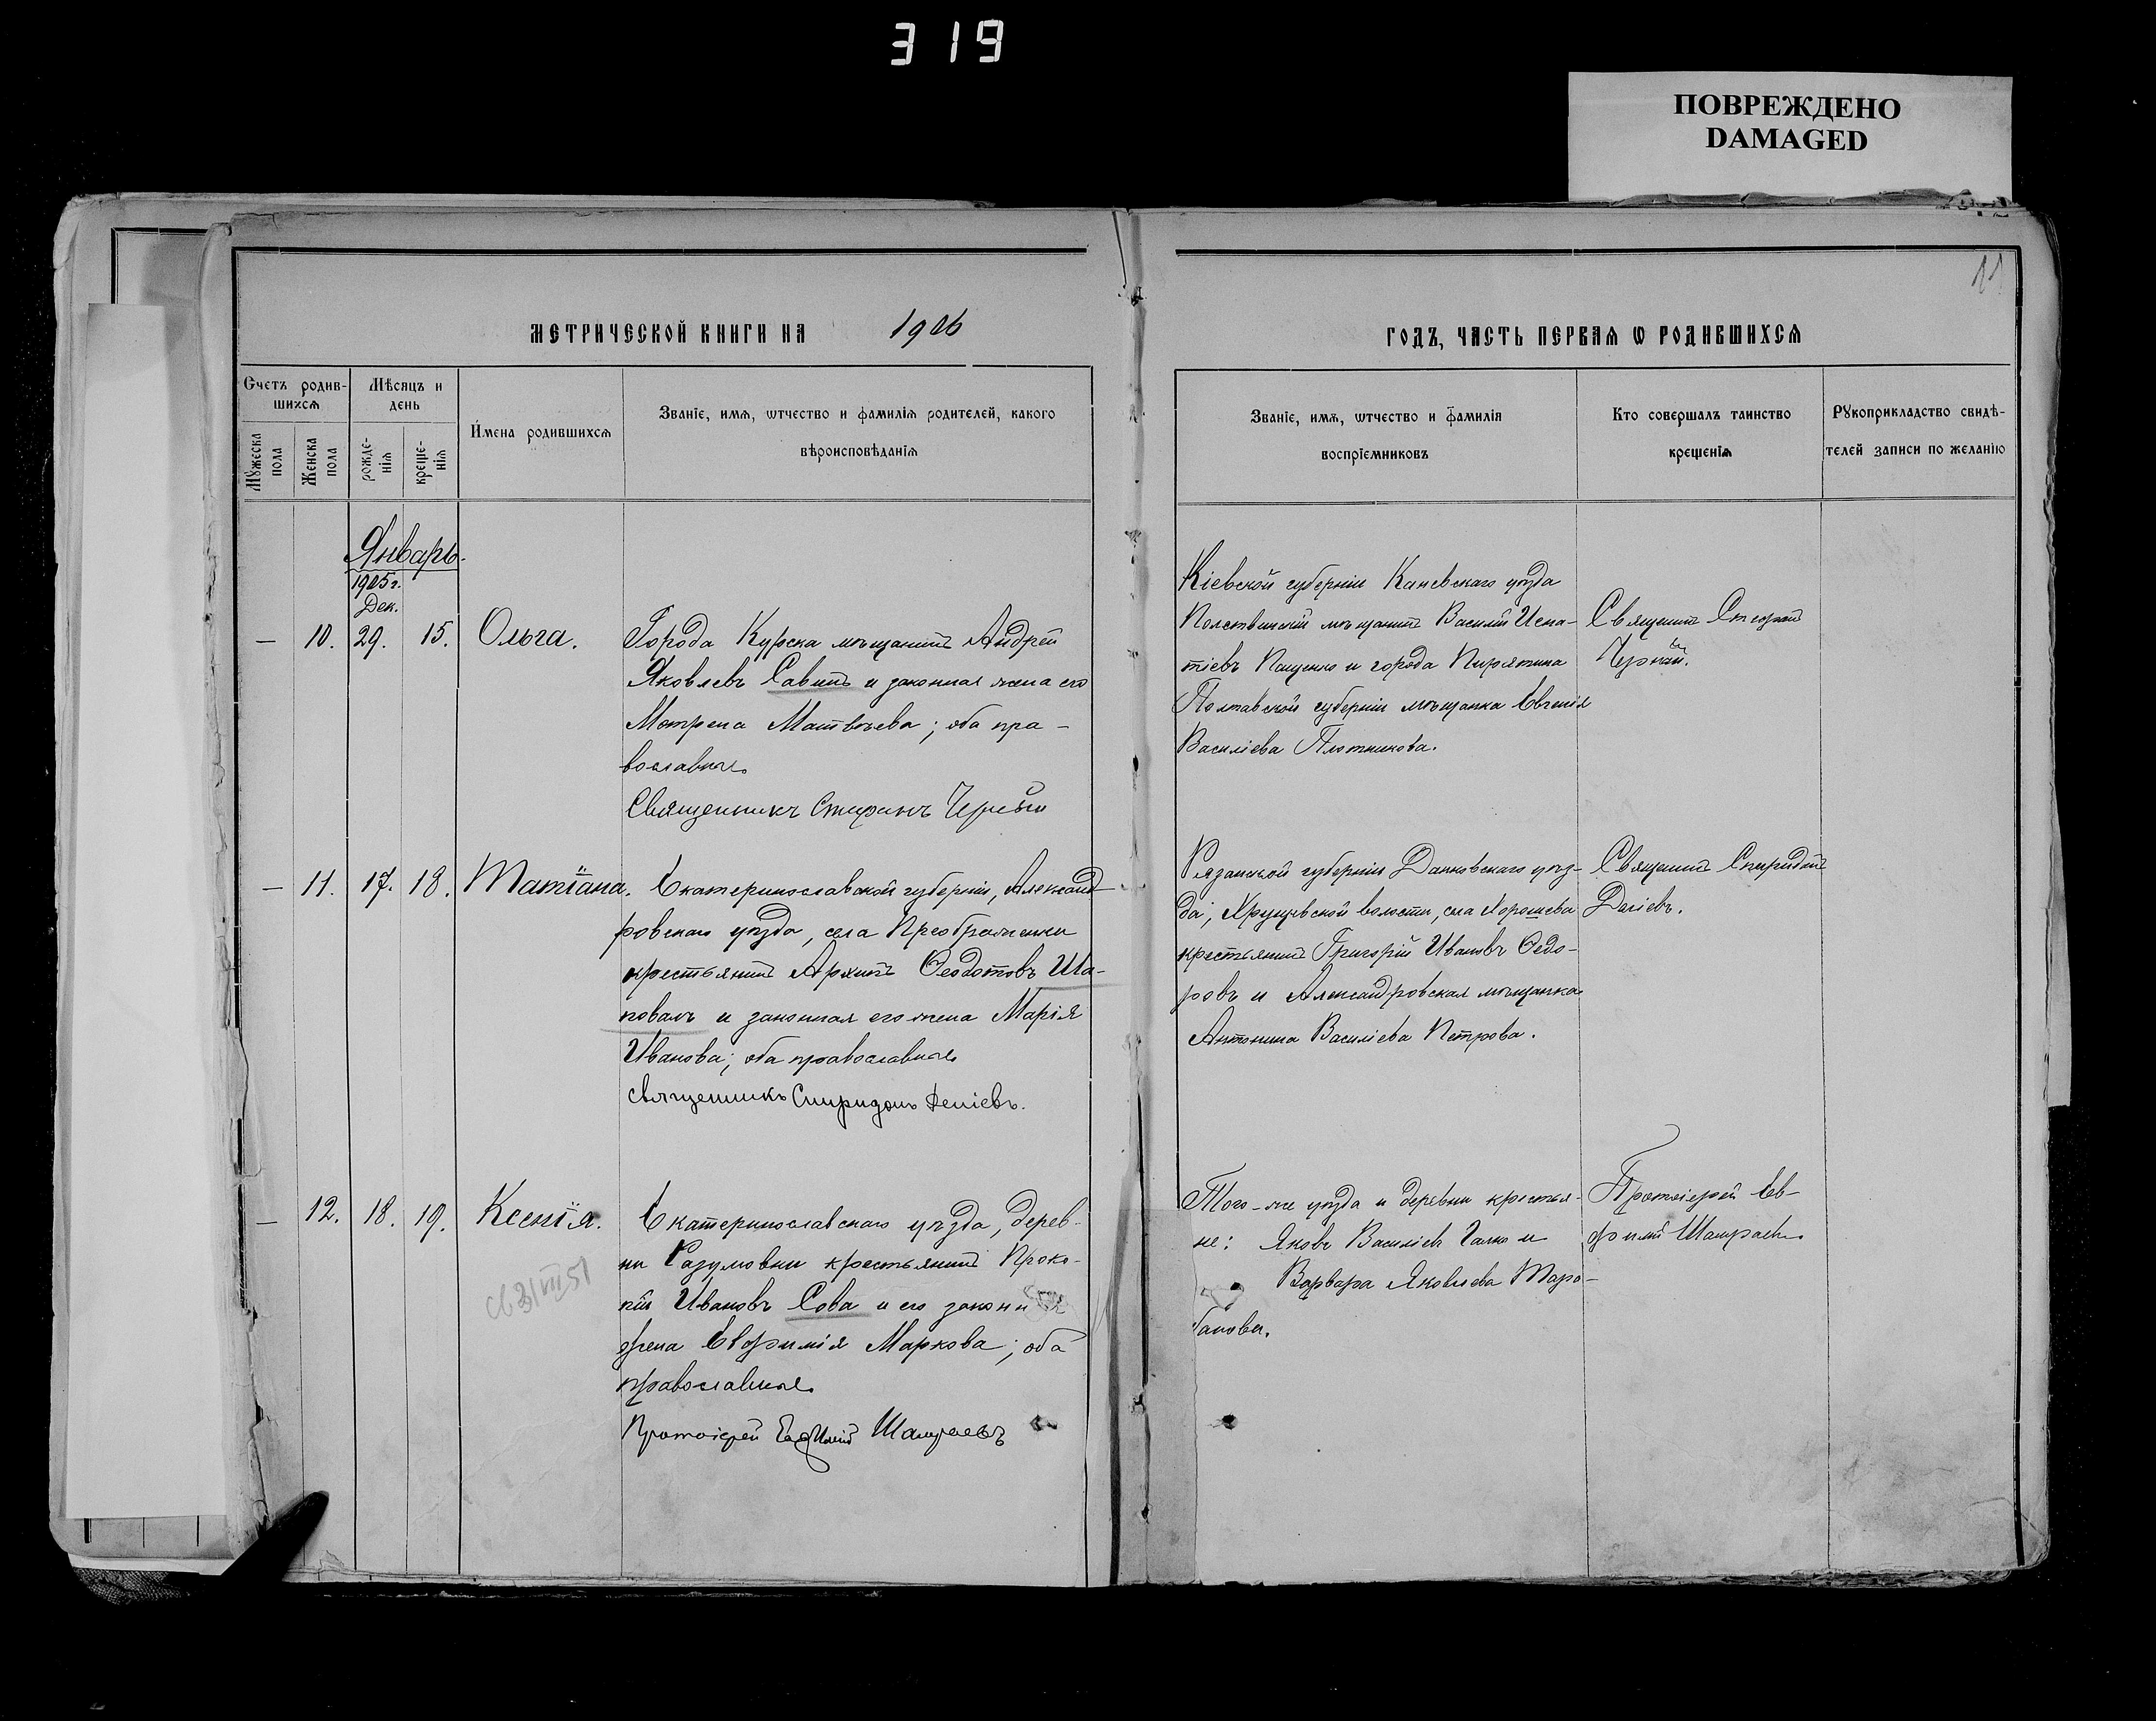 319
ПОВРЕЖДЕНО
DAMAGED
11
МЕТРИЧЕСКОЙ КНИГИ НА 1906
ГОДЪ, ЧАСТЬ ПЕРВАЯ Ѡ РОДИВШИХСЯ
Счетъ родив-
шихся
Мѣсяцъ и
день
Имена родившихся
Званіе, имя, ѡтчество и фамилія родителей, какого
вѣроисповѣданія
Мꙋжеска
пола
Женска
пола
рожде-
нія
креще-
нія
Званіе, имя, ѡтчество и фамилія
воспріемниковъ
Кто совершалъ таинство
крещенія
Рꙋкоприкладство свидѣ-
телей записи по желанію
Январь.
1905 г.
Дек.
— 10. 29. 15. Ольга.
Города Курска мѣщанинъ Андрей
Яковлевъ Савинъ и законная жена его
Мотрена Матвѣева; оба пра-
вославные.
Священникъ Стефанъ
Кіевской губерніи Каневскаго уѣзда
мѣщанинъ Василій Игна-
тіевъ Пащенко и города Пирятина
Полтавской губерніи мѣщанка Евгенія
Василіева Плотникова.
Священникъ Стефанъ
— 11. 17. 18. Татіана.
Екатеринославской губерніи, Александ-
ровскаго уѣзда, села Преображенки
крестьянинъ Архипъ Ѳеодотовъ Ша-
повалъ и законная его жена Марія
Иванова; оба православные
священникъ Спиридонъ
Рязанской губерніи Данковскаго уѣз-
да, Хрущевской волости, села Хорошева
крестьянинъ Григорій Ивановъ Ѳедо-
ровъ и Александровская мѣщанка
Антонина Василіева Петрова.
Священникъ Спиридонъ
— 12. 18. 19. Ксенія.
св 31 VIII 51
Екатеринославскаго уѣзда, дерев-
ни Разумовки крестьянинъ Проко-
пій Ивановъ Сова и его законная
жена Евфимія Маркова; оба
православные.
Протоіерей Евфимій Шамраевъ
Того-же уѣзда и деревни крестья-
не: Яковъ Василіевъ Галко и
Варвара Яковлева Тара-
банова.
Протоіерей Ев-
фимій Шамраевъ